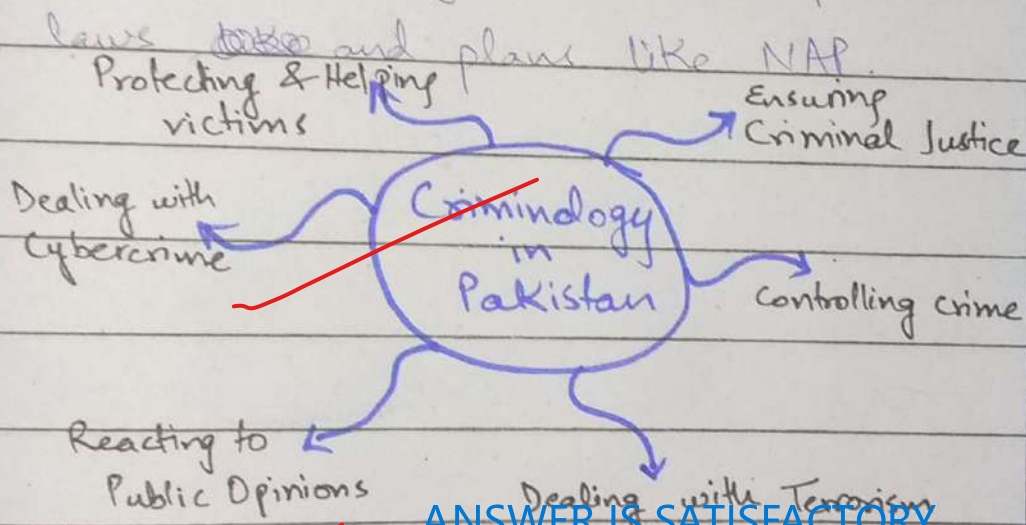 laws and plans like NAP.
Protecting & Helping
victims
Ensuring
Criminal Justice
Dealing with
Cybercrime
Criminology
in
Pakistan
Controlling crime
Reacting to
Public Opinions
Dealing with Terrorism
ANSWER IS SATISFACTORY